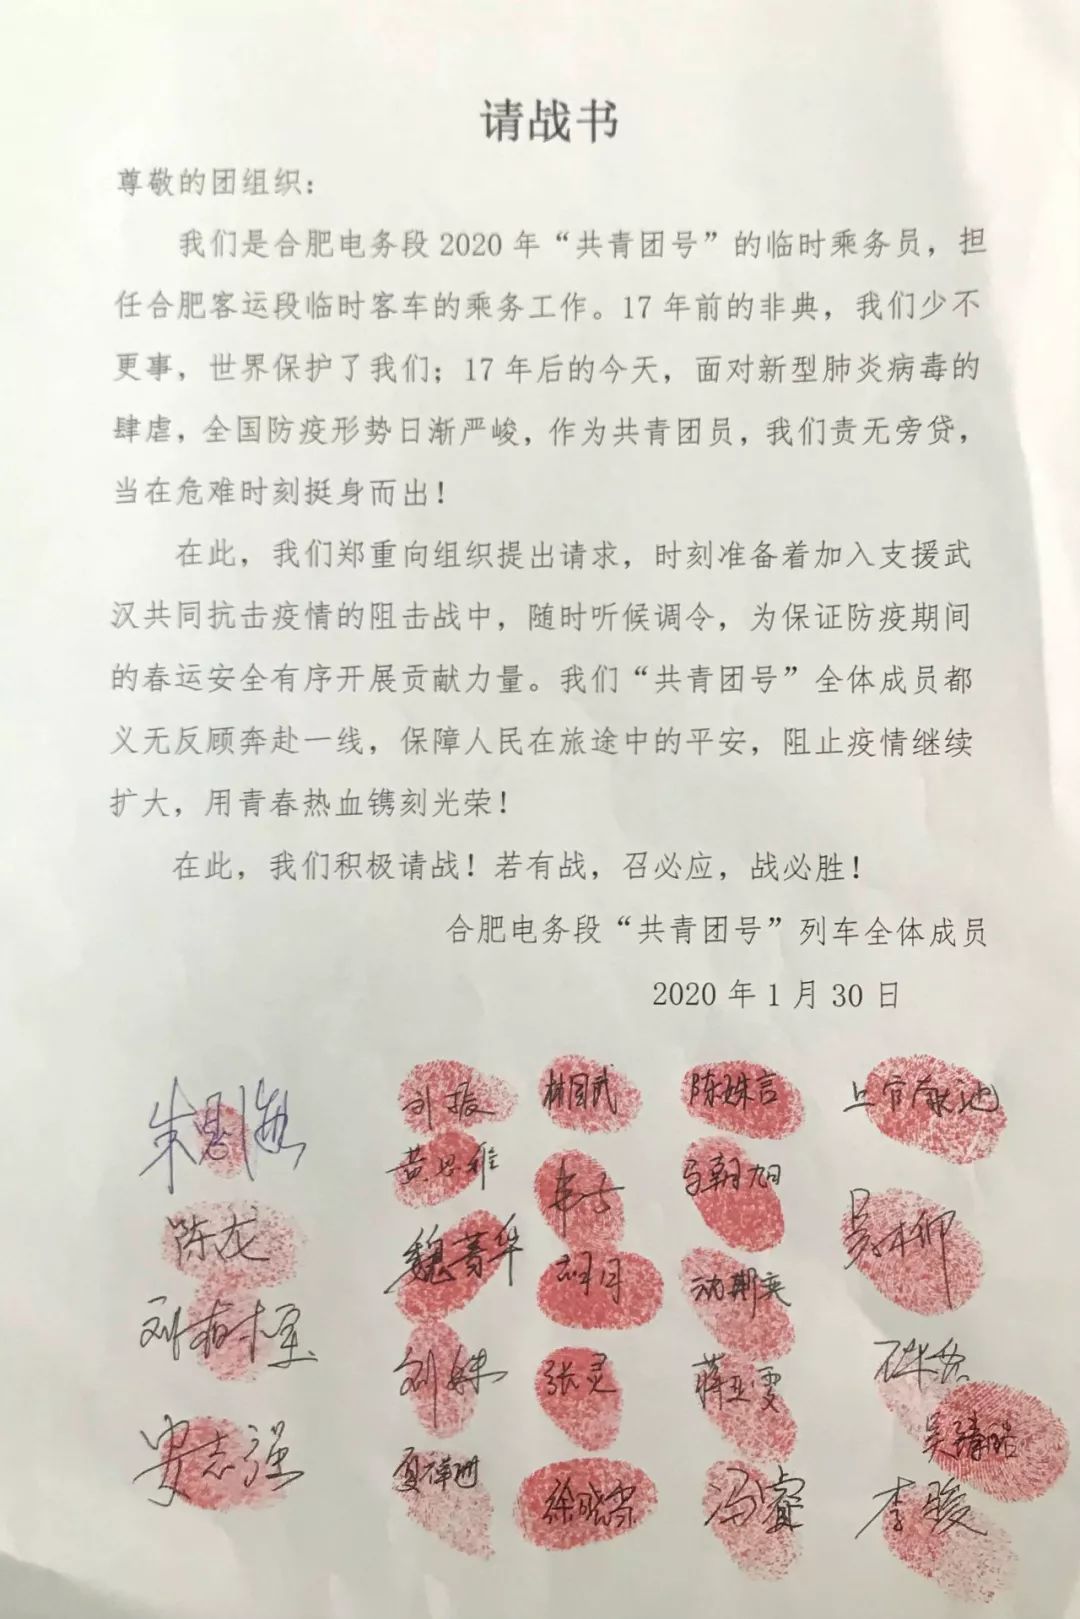 请战书
尊敬的团组织：
我们是合肥电务段2020年“共青团号”的临时乘务员，担
任合肥客运段临时客车的乘务工作。17年前的非典，我们少不
更事，世界保护了我们；17年后的今天，面对新型肺炎病毒的
肆虐，全国防疫形势日渐严峻，作为共青团员，我们责无旁贷，
当在危难时刻挺身而出！
在此，我们郑重向组织提出请求，时刻准备着加入支援武
汉共同抗击疫情的阻击战中，随时听候调令，为保证防疫期间
的春运安全有序开展贡献力量。我们“共青团号”全体成员都
义无反顾奔赴一线，保障人民在旅途中的平安，阻止疫情继续
扩大，用青春热血镌刻光荣！
在此，我们积极请战！若有战，召必应，战必胜！
合肥电务段“共青团号”列车全体成员
2020年1月30日
刘振
陈姝言
黄思维
马朝旭
陈龙
魏菁华
吴柳
胡月
刘姝
张灵
蒋亚雯
安志强
冯睿
李骏